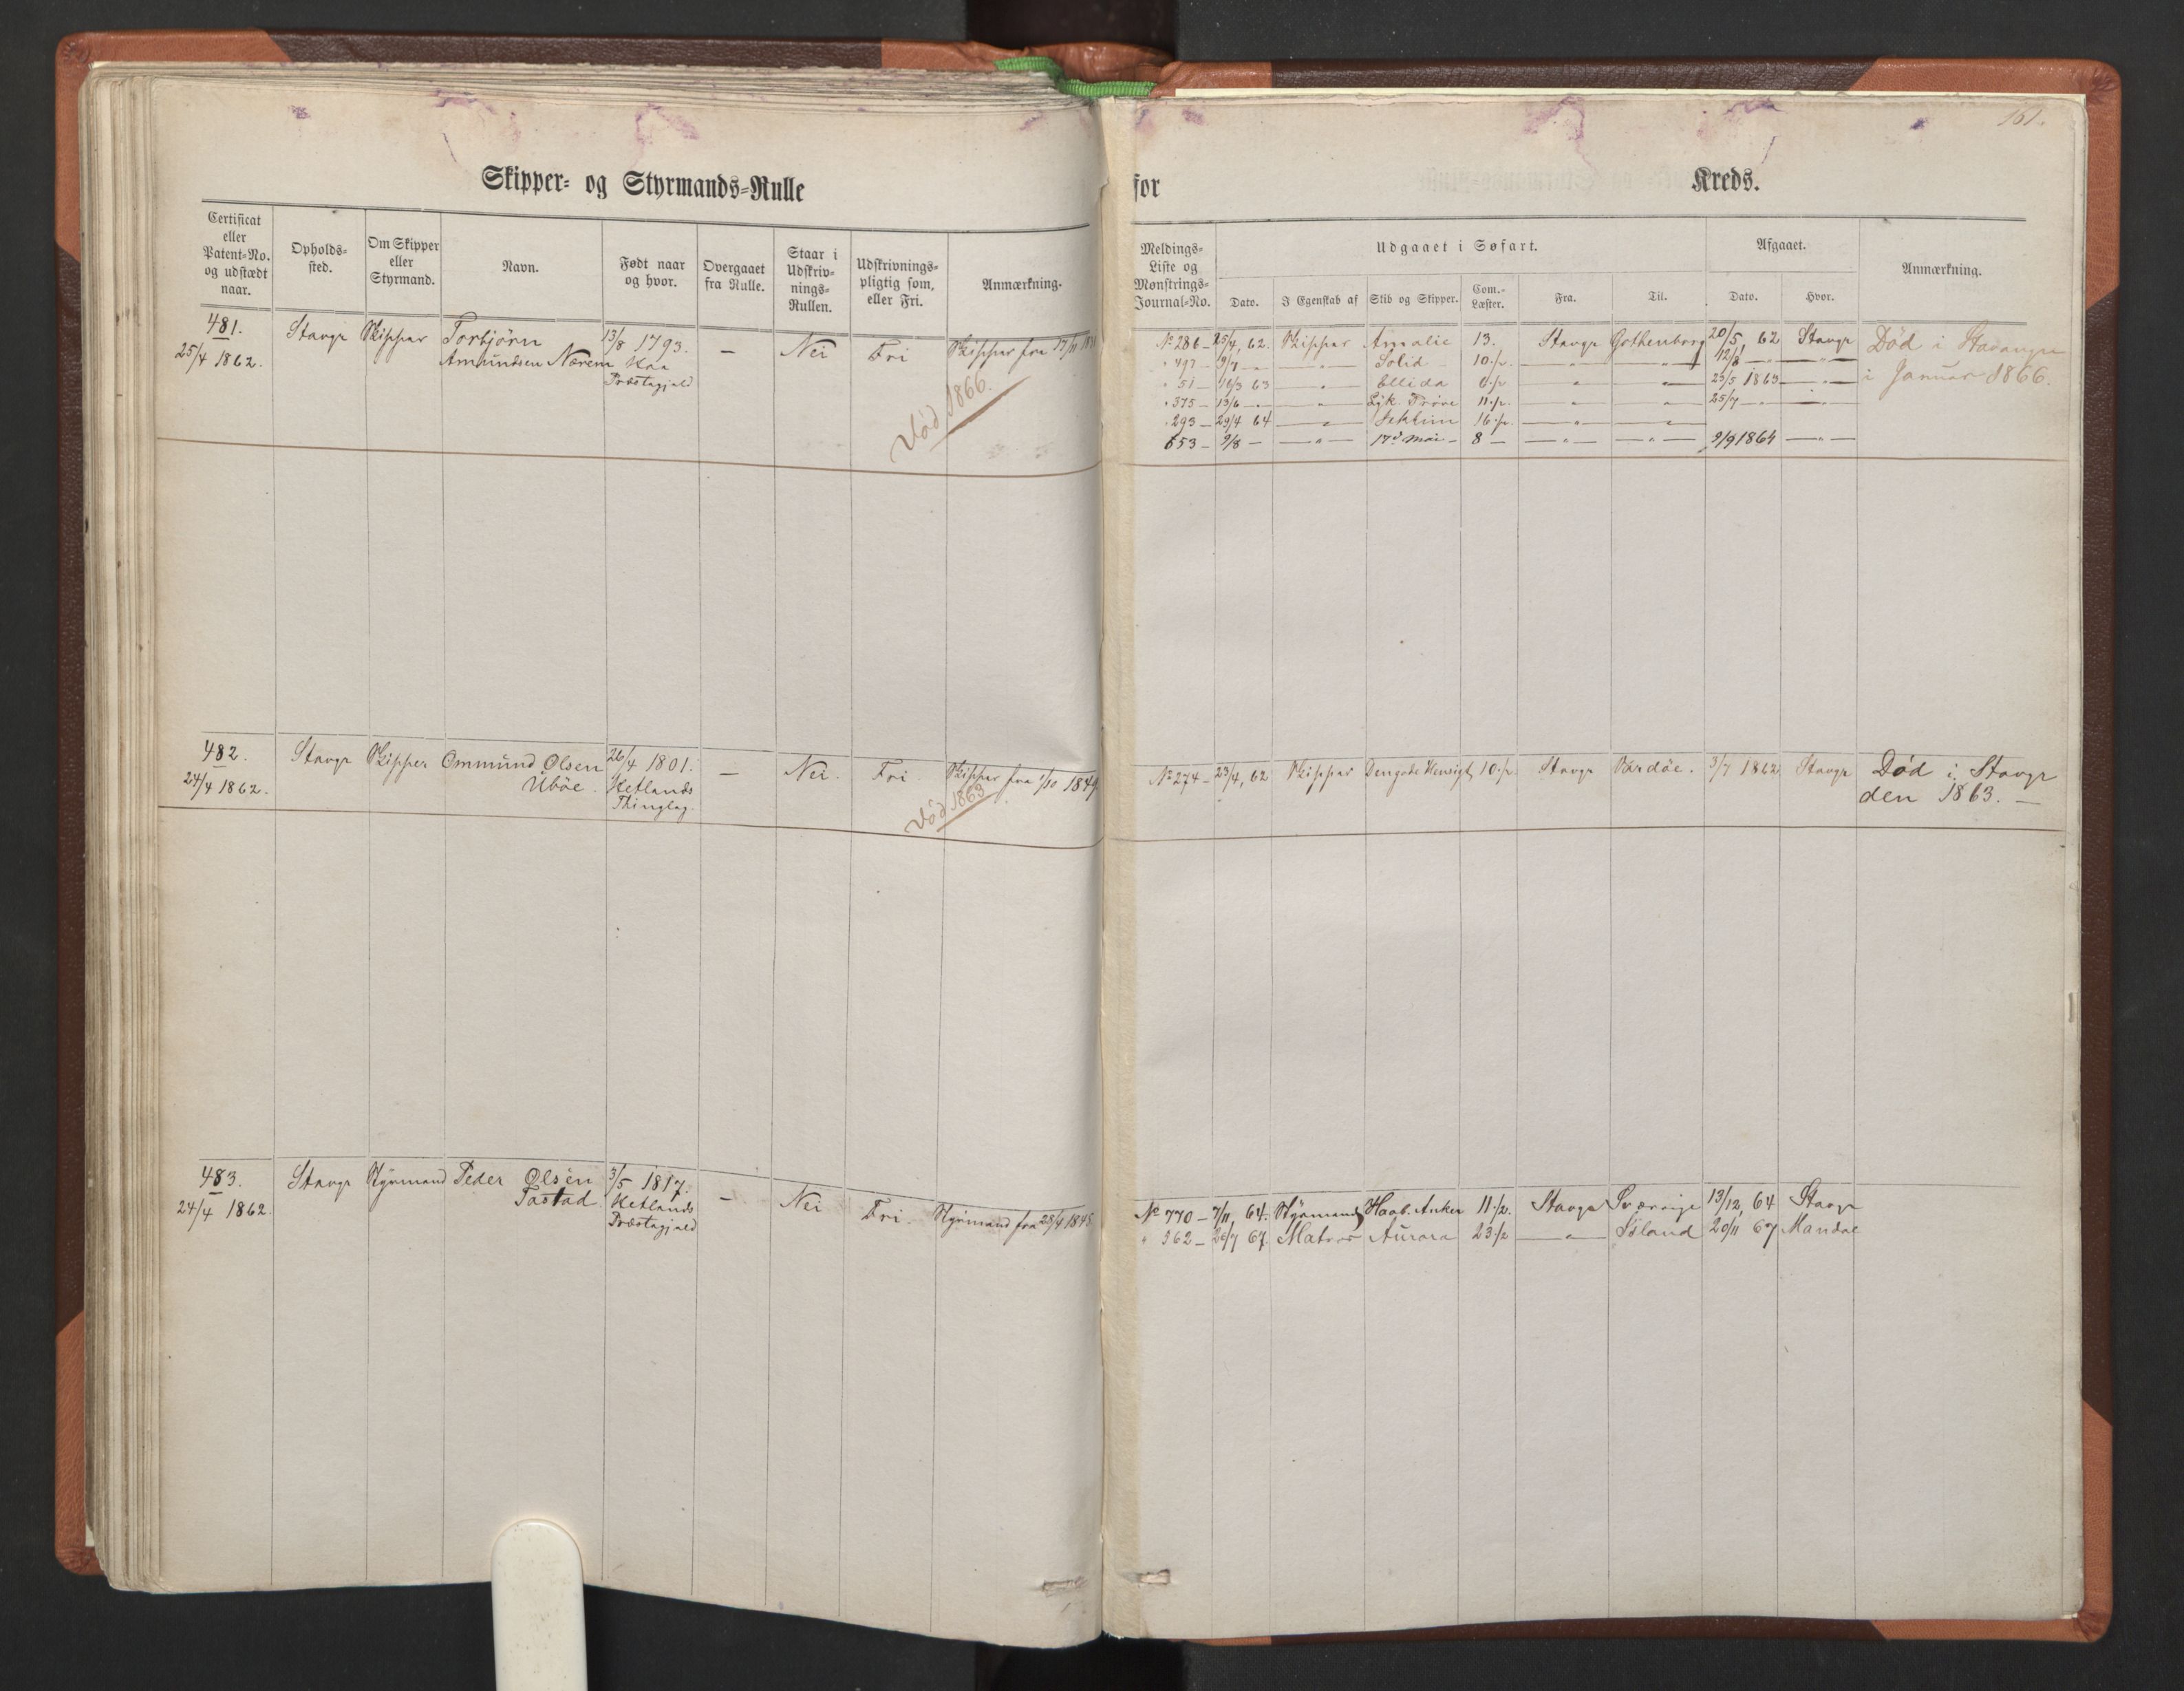 161.
Skipper- og Styrmands-Rulle for Kreds.
Certificat eller Patent-No. og udstædt naar.
Opholds-sted.
Om Skipper eller Styrmand.
Navn.
Født naar og hvor.
Overgaaet fra Rulle.
Staar i Udskriv-nings-Rullen.
Udskrivnings-pligtig som, eller Fri.
Anmærkning.
Meldings-Liste og Mønstrings-Journal-No.
Udgaaet i Søfart.
Dato.
I Egenskab af
Skib og Skipper.
Com.-Læster.
Fra.
Til.
Afgaaet.
Dato.
Hvor.
Anmærkning.
481. Stavgr Skipper Torbjørn 13/8 1793. — Nei Fri Skipper fra
25/4 1862. Amundsen Nærem Haa
Præstegjeld
Død 1866.
No 286 — 25/4, 62. Skipper Amalie 13. Stavgr Gothenborg 20/5, 62 Stavgr Død i Stavanger
" 497 — 9/7 — — " — Solid 10 — " — — " — 12/8 — — " — i Januar 1866.
" 51 — 16/3 63 — " — Ellida — " — — " — 23/5 1863 — " —
" 375 — 13/6 — — " — Lyk. Prøve 11 — " — — " — 25/7 — — " —
" 293 — 29/4 64 — " — 16 — " — — " —
653 — 9/8 — — " — 17d Mai — 8 — — " — — " — 9/9 1864 — " —
482. Stavgr Skipper Ommund Olsen 26/4 1801. — Nei. Fri Skipper fra 1/10 1849
24/4 1862. Uböe. Hetlands
Thinglag.
Død 1863
No 274 — 23/4, 62 Skipper Den gode Hensigt 10 Stavgr Vardöe. 3/7 1862 Stavgr Död i Stavgr
den 1863. —
483. Stavgr Styrmand Peder Olsen 3/5 1817. — Nei Fri. Styrmand fra
24/4 1862. Tastad Hetlands
Præstegjeld
No 770 — 7/11, 64. Styrmand Haab. Anker 11 Stavgr Sverrige 13/12, 64 Stavgr
" 362 — 26/7 67. Matros Aurora 23 — " — Island 20/11 67 Mandal